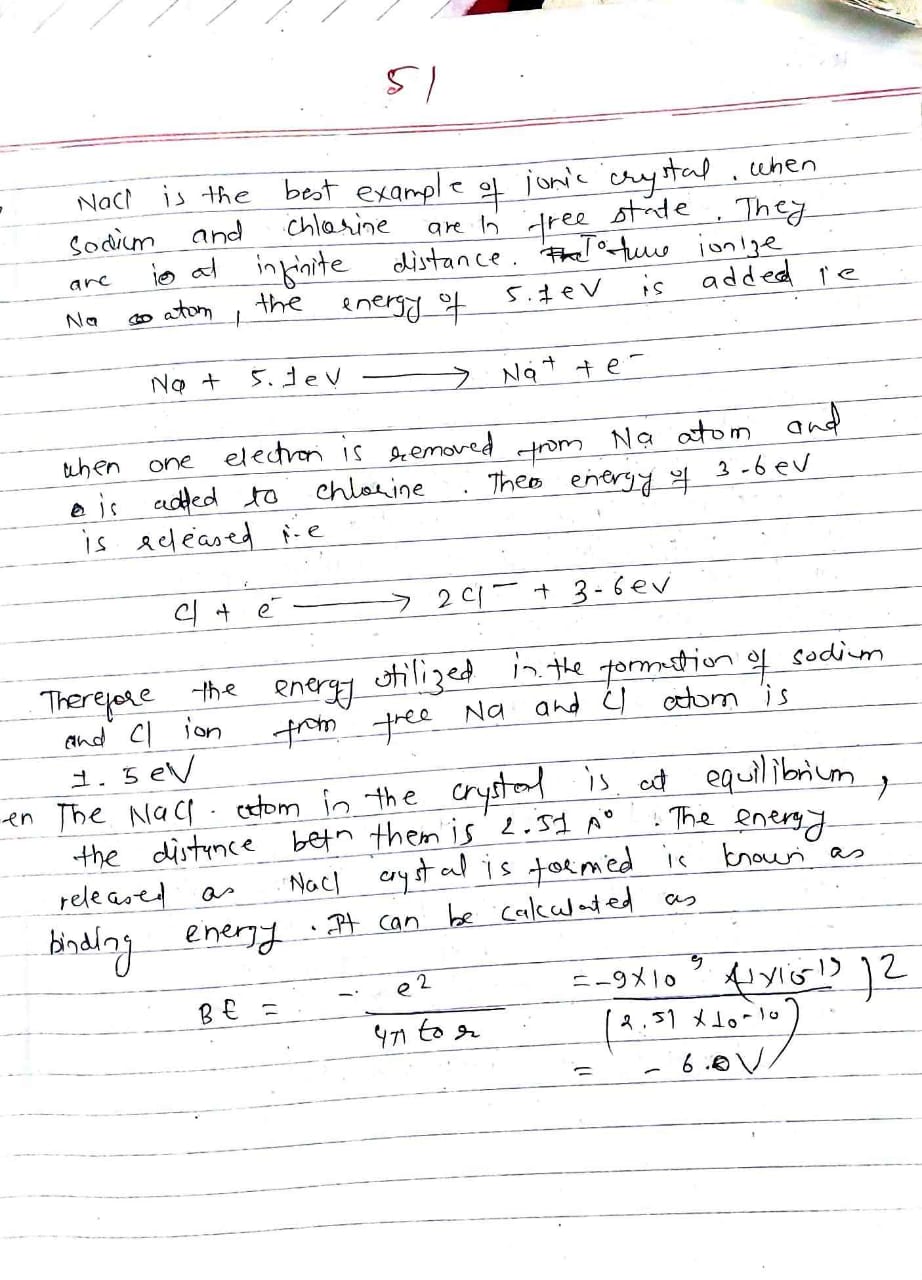 51
NaCl is the best example of ionic crystal. when
Sodium and chlorine are In free state. They
are at infinite distance. To ionize
Na atom, the energy of 5.1eV is added i'e
Na + 5.1eV → Na⁺ + e⁻
when one electron is removed from Na atom and
is added to chlorine. Then energy of 3-6 eV
is released i-e
Cl + e⁻ → 2Cl⁻ + 3-6ev
Therefore the energy utilized in the formation of sodium
and Cl ion from free Na and Cl atom is
1.5 eV
en The NaCl. atom in the crystal is at equilibrium,
the distance betn them is 2.51 A°. The energy
released as NaCl crystal is formed is known as
binding energy. It can be calculated as
BE = - e2 / 4π ε0 r = -9X10⁹ X10⁻¹⁹)2 / (2.51 X 10-10)
= - 6. V